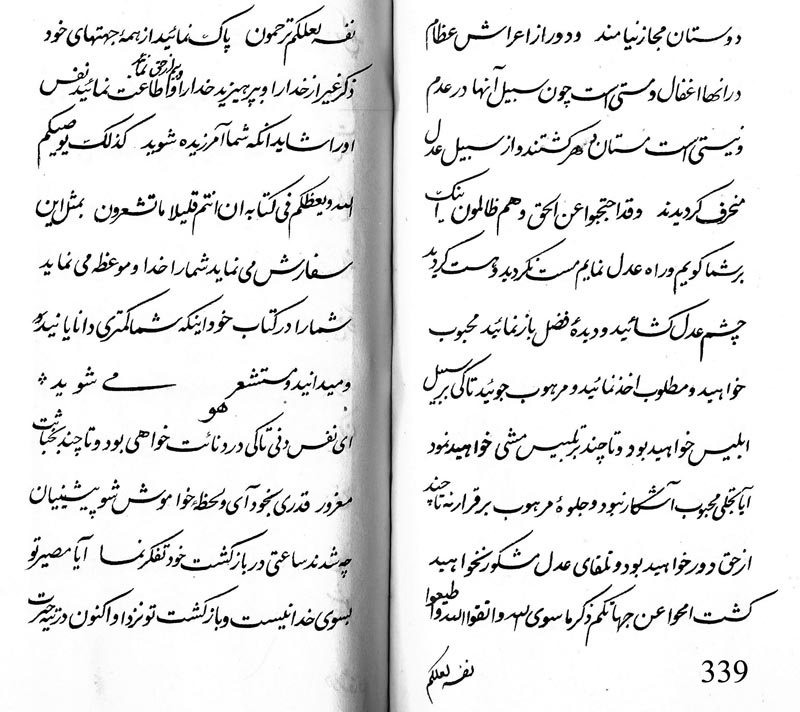 دوستان مجاز نیامند و دور از اعراش عظام
در انها اغفال و مستی است چون سبیل آنها در عدم
و نیستی است مستان دهر کشتند و از سبیل عدل
منحرف کردیدند و قد احتجبوا عن الحق و هم ظالمون اینک
بر شما کویم و راه عدل نمایم مست نکردید و هست کردید
چشم عدل کشائید و دیدهٔ فضل باز نمائید محبوب
خواهید و مطلوب اخذ نمائید و مرهوب جوئید تا کی بر سبیل
ابلیس خواهید بود و تا چند بر تلبیس مشی خواهید نمود
ایا تجلی محبوب آشکار نبود و جلوهٔ مرهوب برقرار نه تا چند
از حق دور خواهید بود و تلقای عدل مشکور نخواهید
کشت امحوا عن جهاتکم ذکر ما سوی الله و اتقوا الله و اطیعوا
نفسه لعلکم
339
نفسه لعلکم ترحمون پاک نمائید از همهٔ جهتهای خود
ذکر غیر از خدا را و بپرهیزید خدا را و اطاعت نمائید نفس
او را شاید انکه شما آمرزیده شوید کذلک یوصیکم
الله و یعظکم فی کتابه ان انتم قلیلا ما تشعرون بمثل این
سفارش می نماید شما را خدا و موعظه می نماید
شما را در کتاب خود اینکه شما کمتری دانایانید
و میدانید و مستشعر می شوید
هو
ای نفس دنی تا کی در دنائت خواهی بود و تا چند بخباثت
مغرور قدری بخود آی و لحظهٔ خواموش شو پیشینیان
چه شدند ساعتی در بازکشت خود تفکر نما آیا مصیر تو
بسوی خدا نیست و بازکشت تو نزد او اکنون در تیه حیرت